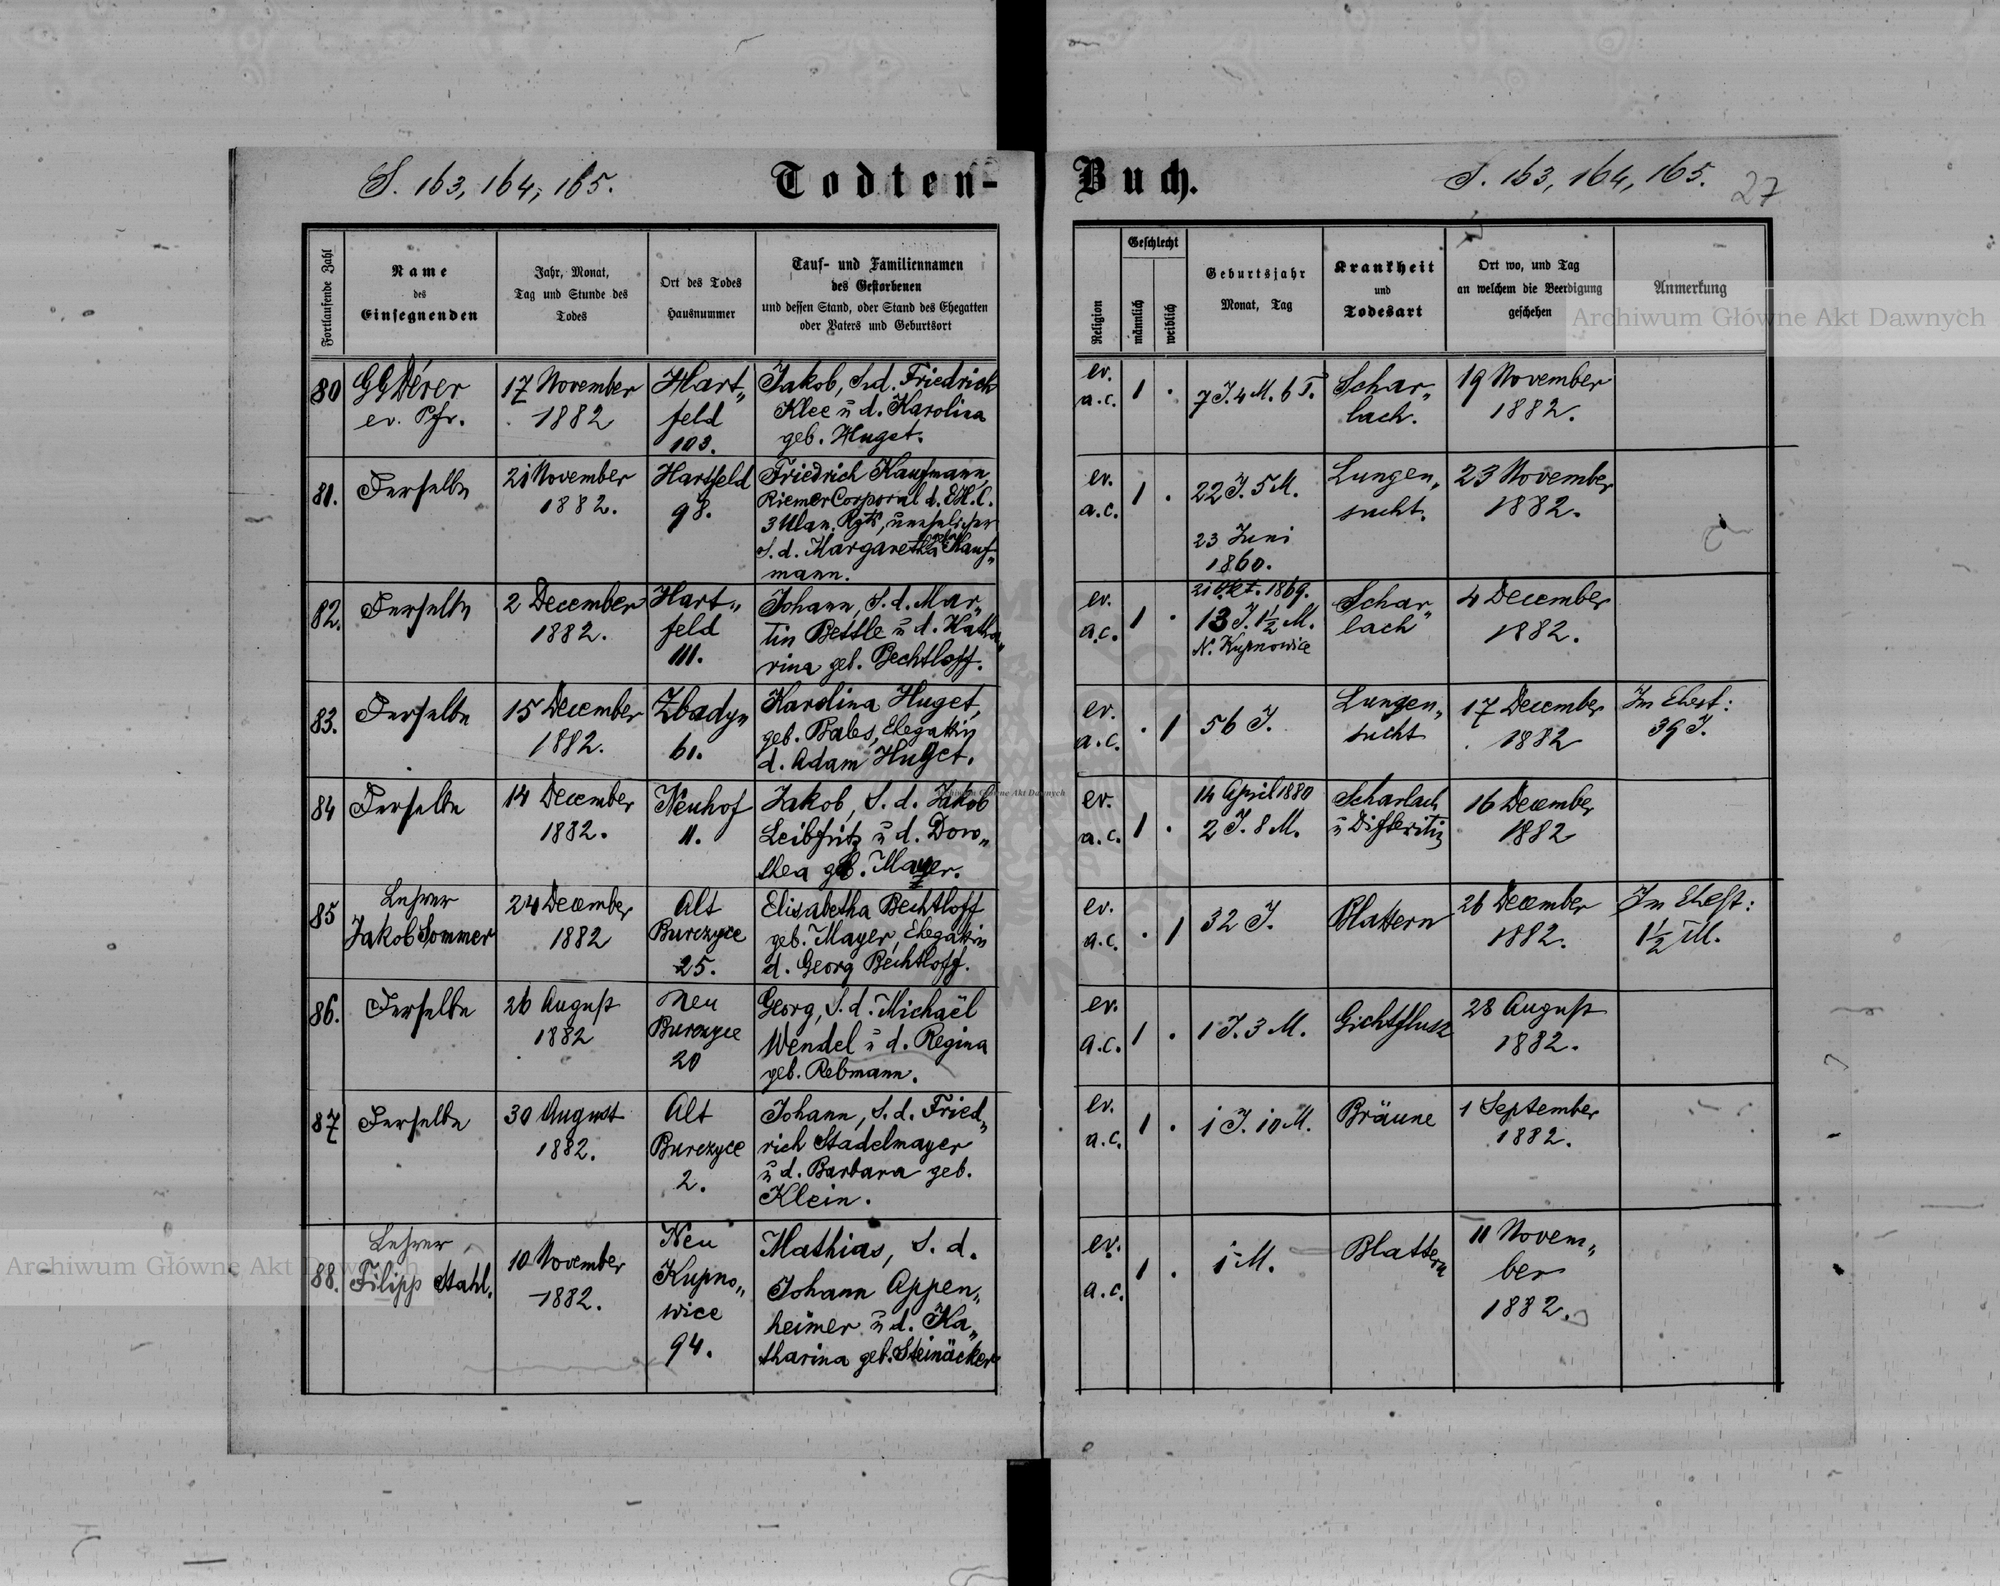 S. 163, 164, 165.
Todten-
Buch.
S. 163, 164, 165.
27
Fortlaufende Zahl
Name
des
Einsegnenden
Jahr, Monat,
Tag und Stunde des
Todes
Ort des Todes
Hausnummer
Tauf- und Familiennamen
des Gestorbenen
und dessen Stand, oder Stand des Ehegatten
oder Vaters und Geburtsort
Religion
Geschlecht
männlich
weiblich
Geburtsjahr
Monat, Tag
Krankheit
und
Todesart
Ort wo, und Tag
an welchem die Beerdigung
geschehen
Anmerkung
Archiwum Główne Akt Dawnych
80
GGDérer
ev. Pfr.
17 November
1882
Hart„
feld
103.
Jakob, S.d. Friedrich
Klee u d. Karolina
geb. Huget.
ev.
a.c.
1 .
7 J. 4 M. 6 T.
Schar„
lach.
19 November
1882.
81.
Derselbe
21 November
1882.
Hartfeld
98.
Friedrich Kaufmann,
Riemer Corporal d.
3 Ulan. Rgts, unehelicher
S. d. Margaretha Kauf„
mann.
ev.
a.c.
1 .
22 J. 5 M.
23 Juni
1860.
Lungen„
sucht.
23 November
1882.
82.
Derselbe
2 December
1882.
Hart„
feld
111.
Johann, S. d. Mar„
tin Bettle u d. Katha„
rina geb. Bechtloff.
ev.
a.c.
1 .
21 Okt. 1869.
13 J. 1½ M.
N. Kupnowice
Schar„
lach
4 December
1882.
83.
Derselbe
15 December
1882.
Zbadyn
61.
Karolina Huget,
geb. Bales, Ehegattin
d. Adam Huget.
ev.
a.c.
. 1
56 J.
Lungen„
sucht
17 December
1882
In Ehest:
39 J.
84
Derselbe
14 December
1882.
Neuhof
11.
Jakob, S. d. Jakob
Leibfritz u d. Doro„
thea geb. Mayer.
ev.
a.c.
1 .
14 April 1880
2 J. 8 M.
Scharlach
u Difteritis
16 December
1882
85
Lehrer
Jakob Sommer
24 December
1882
Alt
Burczyce
25.
Elisabetha Bechtloff
geb. Mayer, Ehegattin
d. Georg Bechtloff.
ev.
a.c.
. 1
32 J.
Blattern
26 December
1882.
In Ehest:
1½ M.
86.
Derselbe
26 August
1882
Neu
Burczyce
20
Georg, S. d. Michaël
Wendel u d. Regina
geb. Rebmann.
ev.
a.c.
1 .
1 J. 3 M.
Gichtfluss
28 August
1882.
87
Derselbe
30 August
1882.
Alt
Burczyce
2.
Johann, S. d. Fried„
rich Stadelmayer
u d. Barbara geb.
Klein.
ev.
a.c.
1 .
1 J. 10 M.
Bräune
1 September
1882.
88.
Lehrer
Filipp Stahl.
10 November
1882.
Neu
Kupno„
wice
94.
Mathias, S. d.
Johann Appen„
heimer u d. Ka„
tharina geb. Steinäcker
ev.
a.c.
1 .
1 M.
Blattern
11 Novem„
ber
1882.
Archiwum Główne Akt Dawnych
Archiwum Główne Akt Dawnych